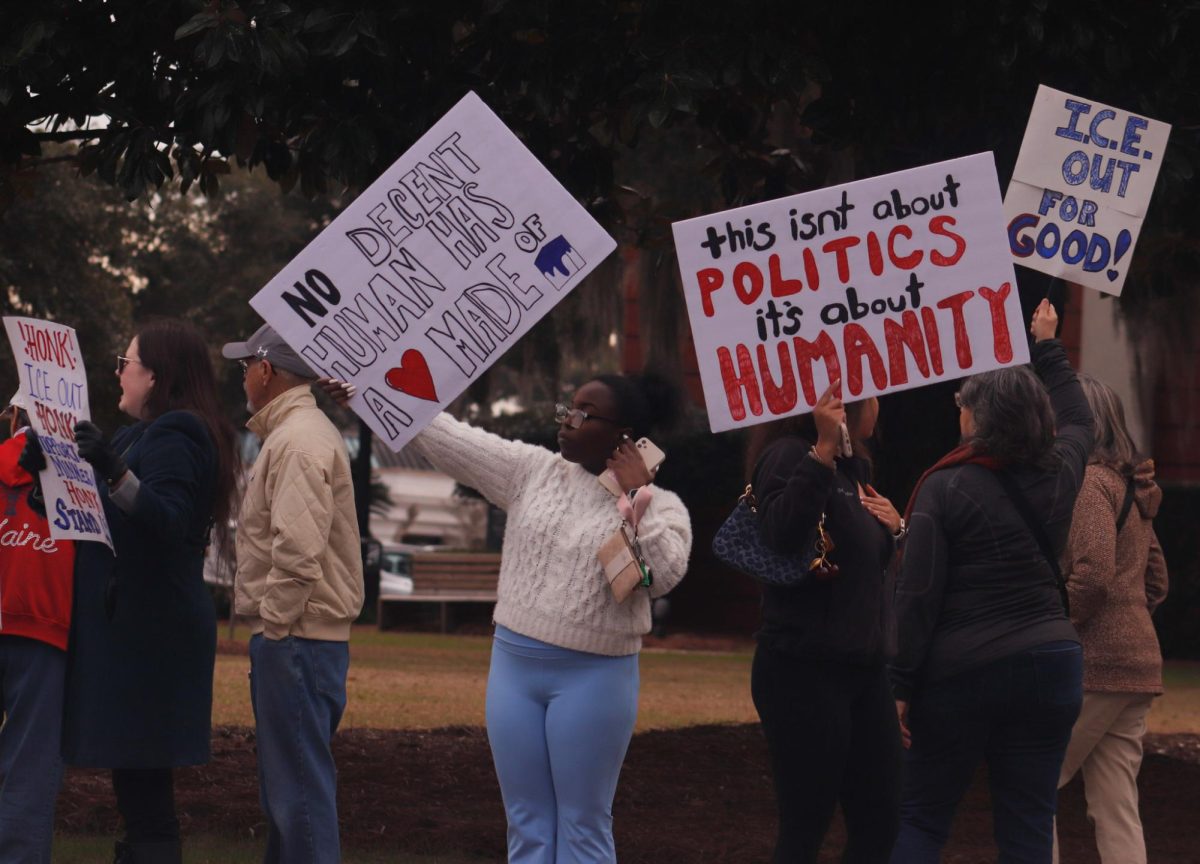 !HONK!
ICE OUT
HONK
HONK
NO DECENT
HUMAN HAS
A MADE OF
this isnt about
POLITICS
it's about
HUMANITY
I.C.E.
OUT
FOR
GOOD!
laine